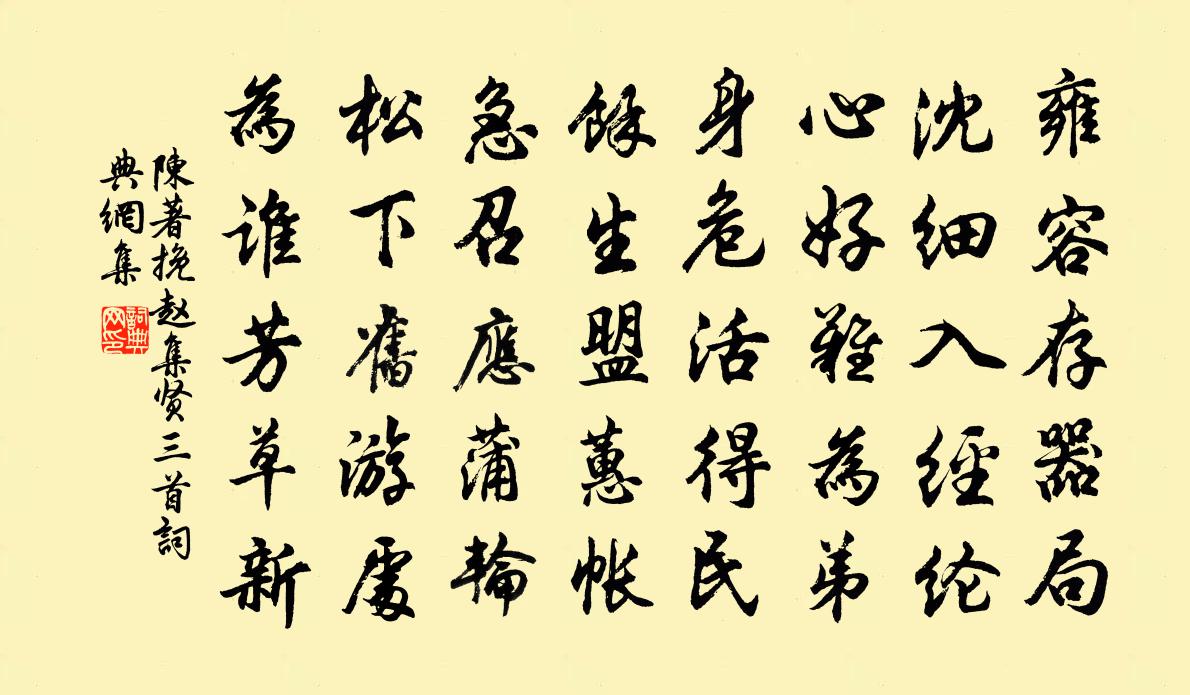 雍容存器局
沈细入經纶
心好難為弟
身危活得民
餘生盟蕙帐
急召應蒲輪
松下舊游處
為谁芳草新
陳著挽赵集贤三首詞
典網集
詞典
网印